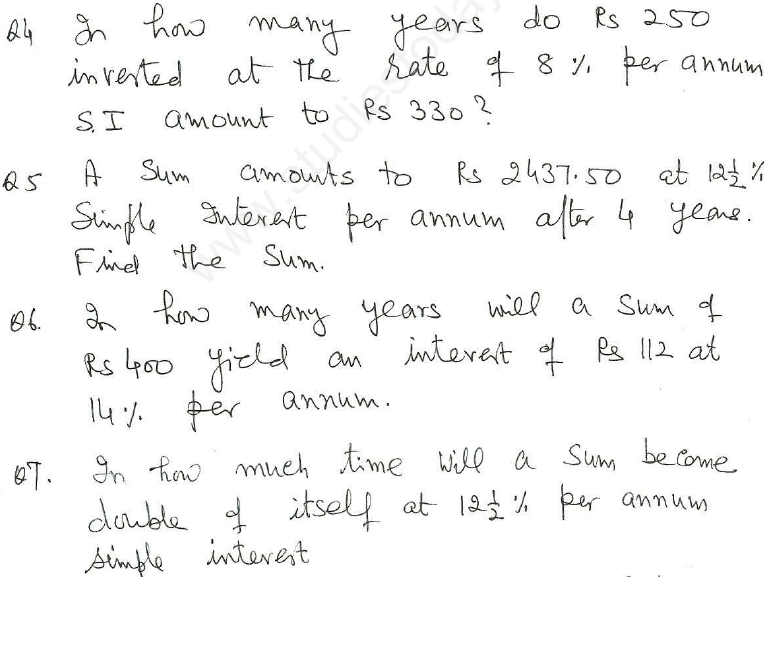 Q4 In how many years do Rs 250
invested at the rate of 8 % per annum
S.I amount to Rs 330?
Q5 A Sum amounts to Rs 2437.50 at 12½ %
Simple Interest per annum after 4 years.
Find the Sum.
Q6. In how many years will a Sum of
Rs 400 yield an interest of Rs 112 at
14 % per annum.
Q7. In how much time will a Sum become
double of itself at 12½ % per annum
simple interest
www.studiestoday